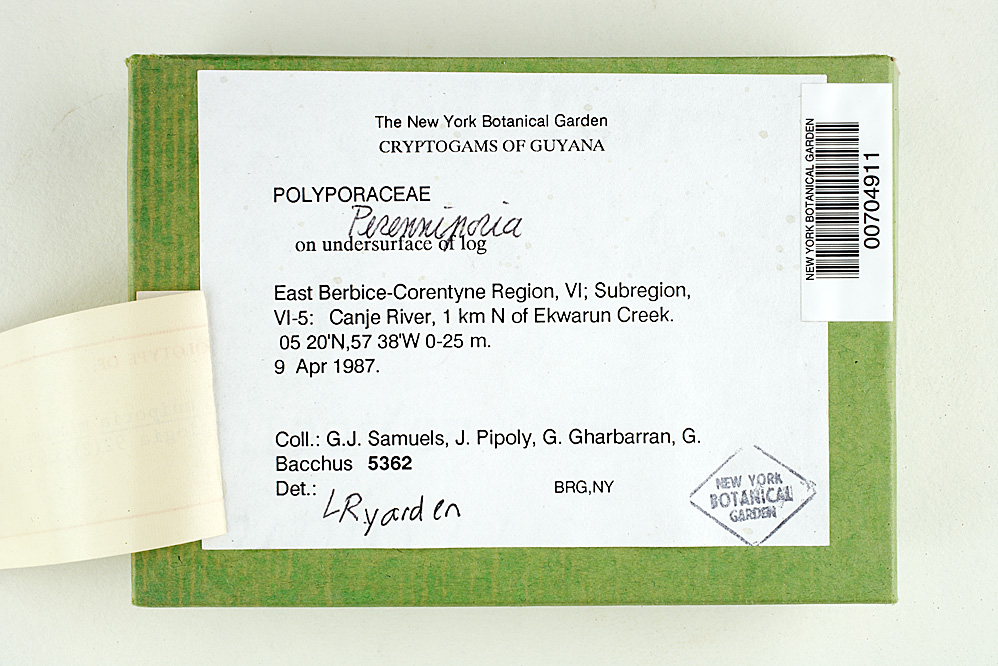 The New York Botanical Garden
CRYPTOGAMS OF GUYANA
POLYPORACEAE
Perenniporia
on undersurface of log
East Berbice-Corentyne Region, VI; Subregion,
VI-5: Canje River, 1 km N of Ekwarun Creek.
05 20'N,57 38'W 0-25 m.
9 Apr 1987.
Coll.: G.J. Samuels, J. Pipoly, G. Gharbarran, G.
Bacchus 5362
Det.: BRG,NY
LRyarden
NEW YORK
BOTANICAL
GARDEN
NEW YORK BOTANICAL GARDEN
00704911